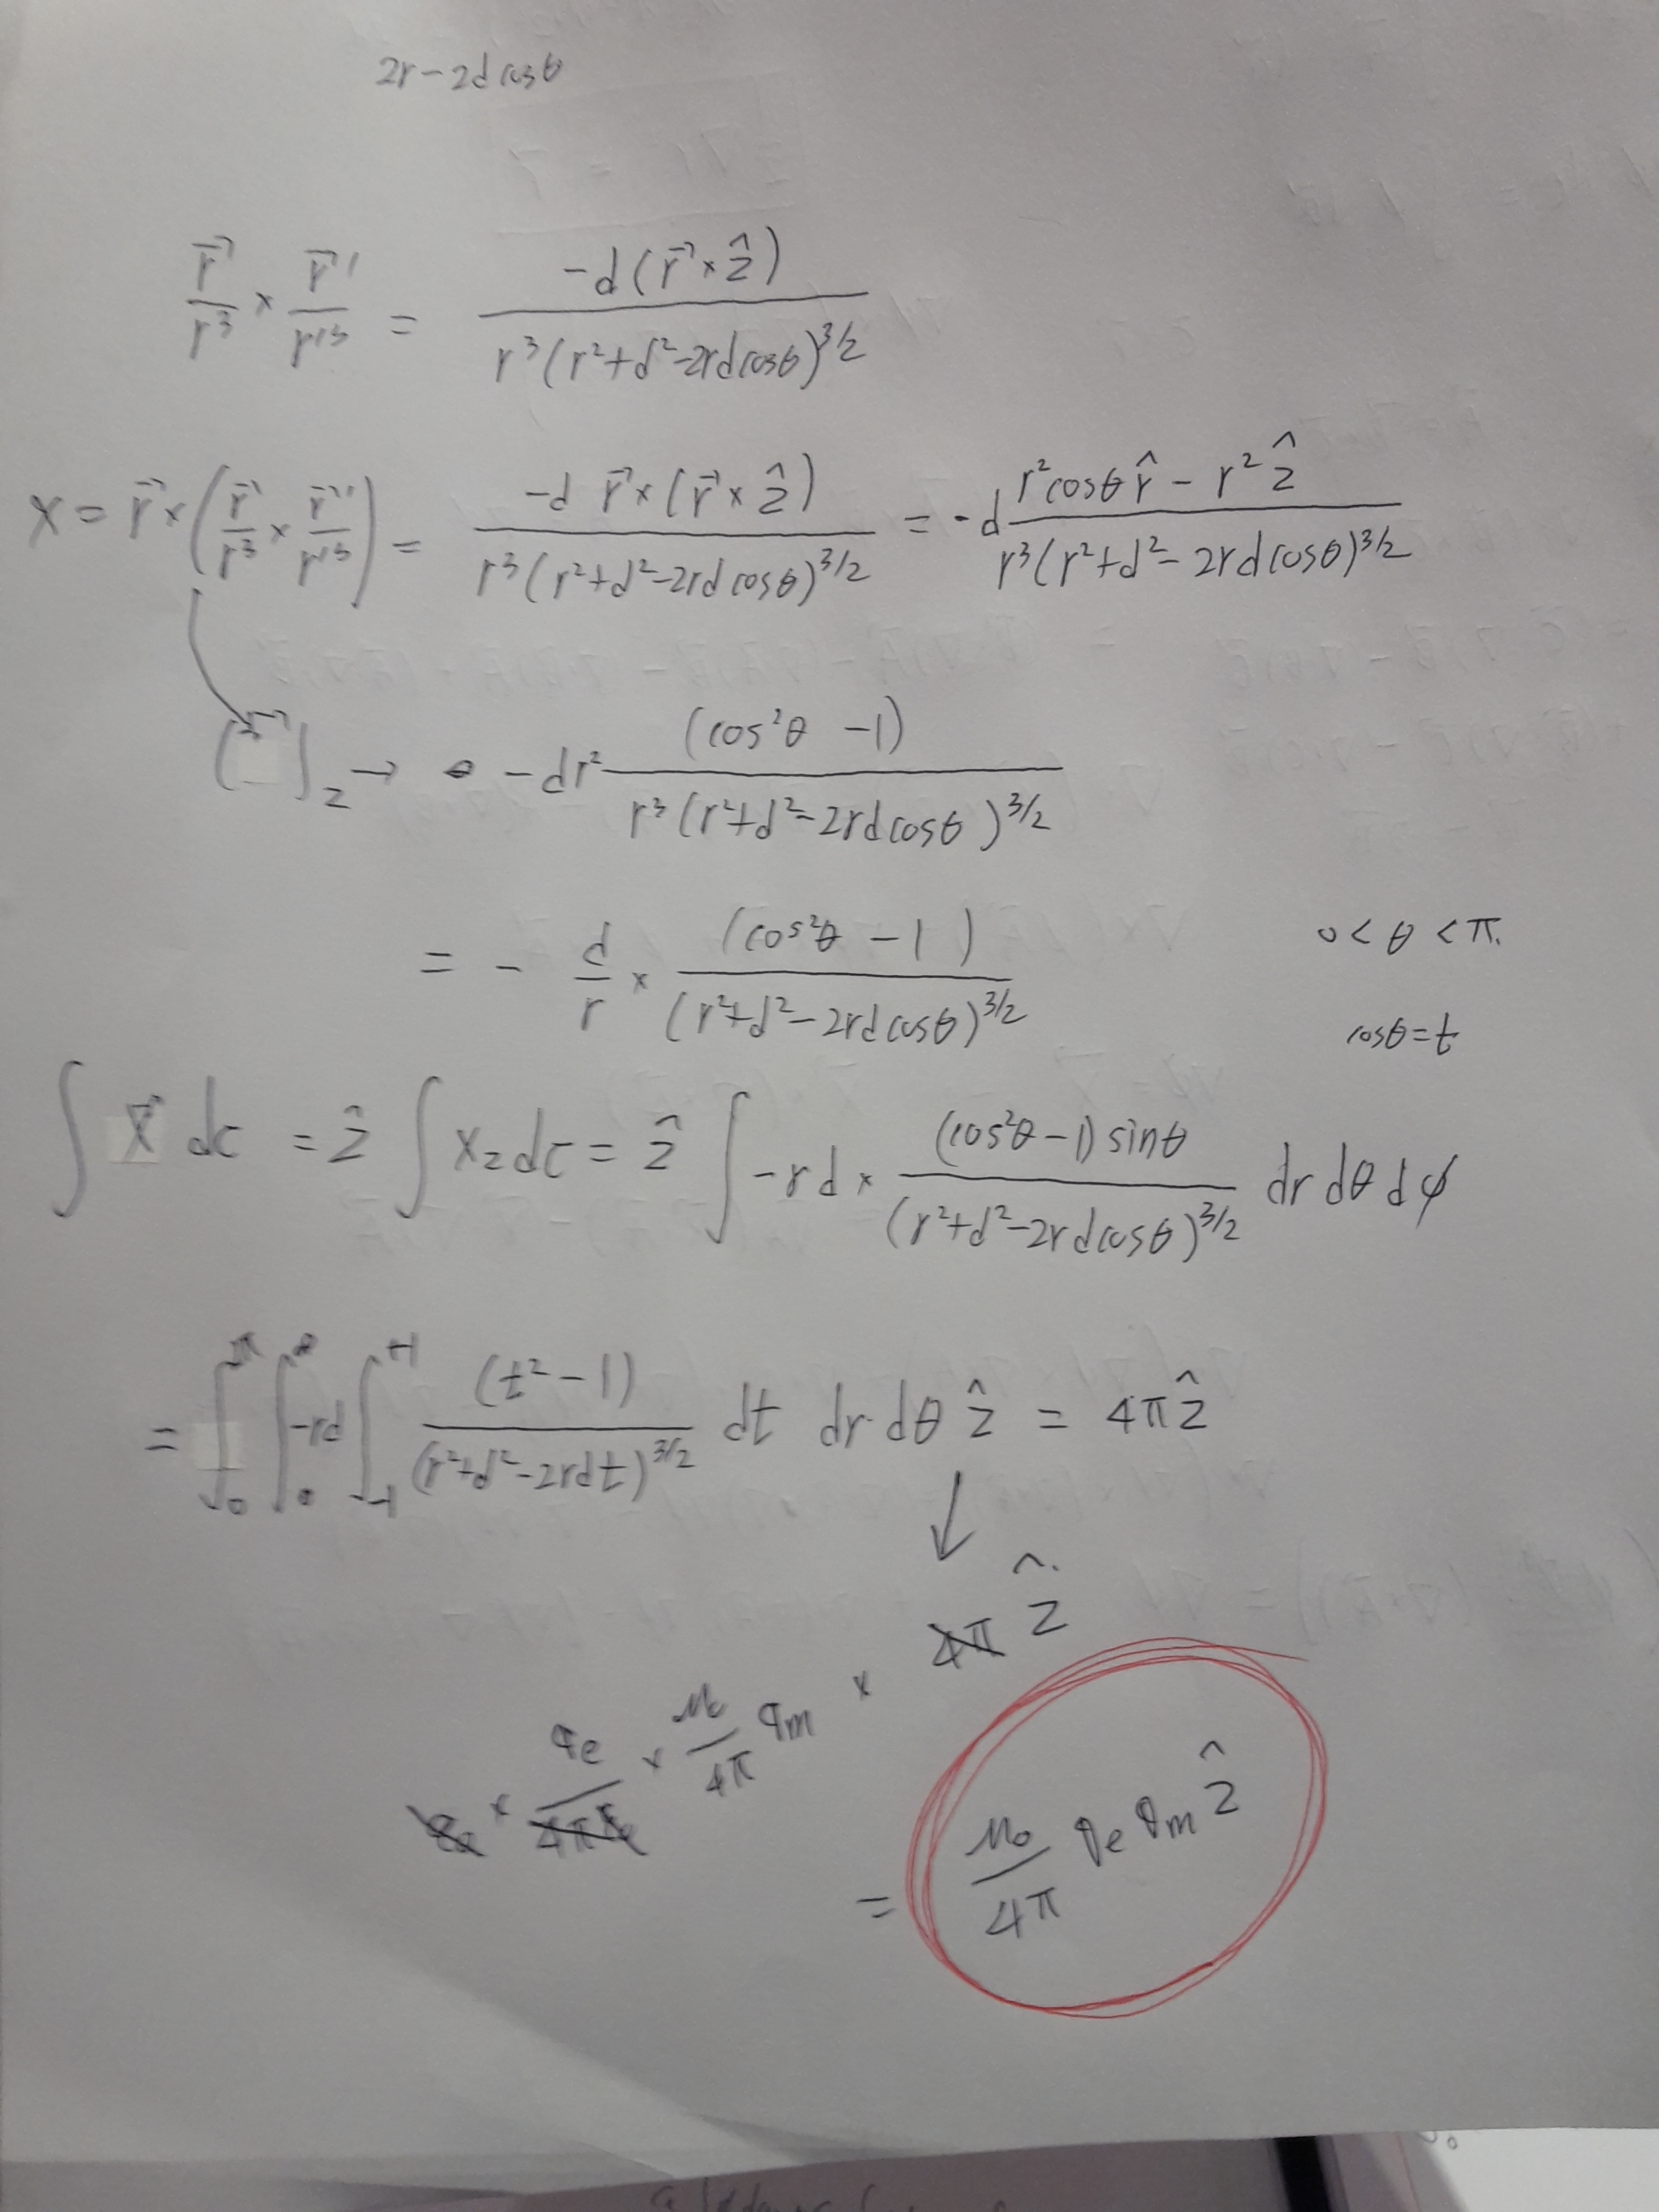 2r-2d cosθ
r⃗/r³ × r⃗'/r'³ = -d(r⃗×ẑ) / r³(r²+d²-2rdcosθ)^3/2
X = r⃗×(r⃗/r³ × r⃗'/r'³) = -d r⃗×(r⃗×ẑ) / r³(r²+d²-2rdcosθ)^3/2 = -d r²cosθ r̂ - r² ẑ / r³(r²+d²-2rdcosθ)^3/2
( )z → -dr² (cos²θ -1) / r³(r²+d²-2rdcosθ)^3/2
= - d/r × (cos²θ -1) / (r²+d²-2rdcosθ)^3/2 0<θ<π.
cosθ=t
∫ X⃗ dτ = ẑ ∫ Xz dτ = ẑ ∫ -rd × (cos²θ-1) sinθ / (r²+d²-2rdcosθ)^3/2 dr dθ dϕ
= ∫₀^2π ∫₀^∞ -rd ∫₋₁^+1 (t²-1) / (r²+d²-2rdt)^3/2 dt dr dθ ẑ = 4πẑ
↓
× qe/4πε₀ × μ₀/4π qm × 4π ẑ
= μ₀/4π qe qm ẑ